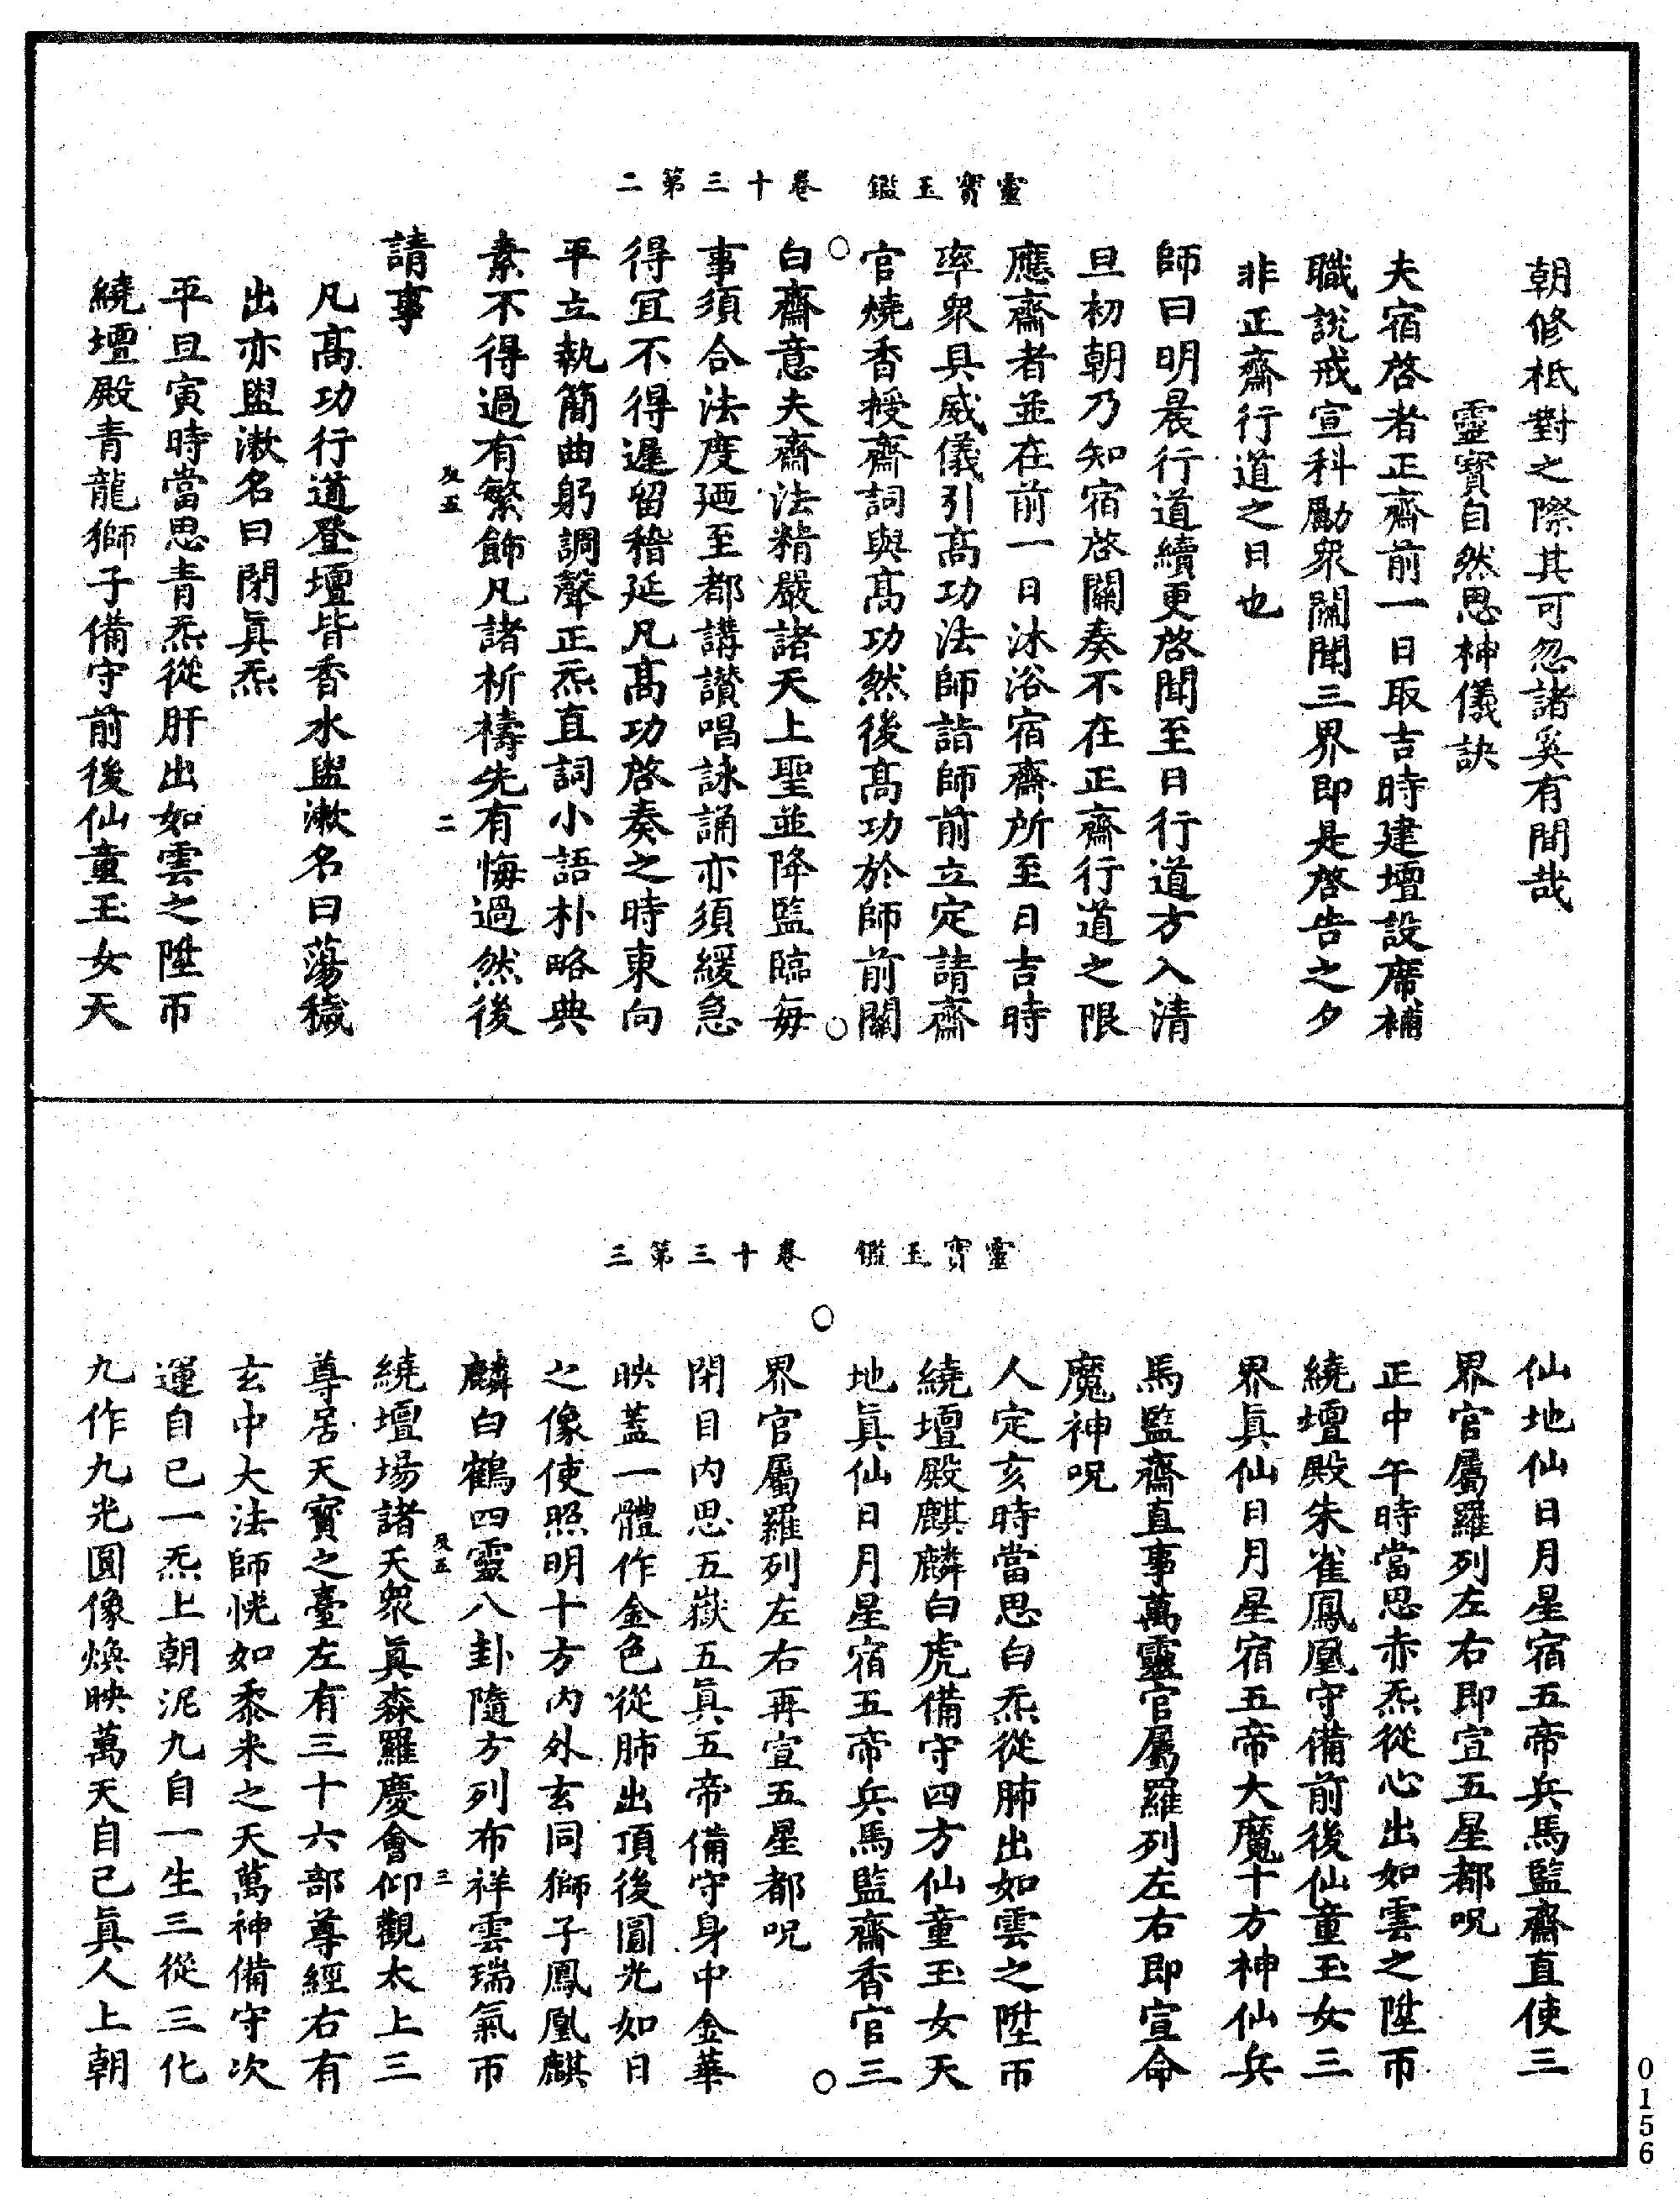 靈寳玉鑑　卷十三第二
朝修祗對之際其可忽諸奚有間哉
靈寳自然思神儀訣
夫宿啓者正齋前一日取吉時建壇設席補
職說戒宣科勵衆關聞三界即是啓告之夕
非正齋行道之日也
師曰明晨行道續更啓聞至日行道方入清
旦初朝乃知宿啓關奏不在正齋行道之限
應齋者並在前一日沐浴宿齋所至日吉時
率衆具威儀引髙功法師詣師前立定請齋
官燒香授齋詞與髙功然後髙功於師前關
白齋意夫齋法精嚴諸天上聖並降監臨每
事須合法度廼至都講讃唱詠誦亦須緩急
得冝不得遲留稽延凡髙功啓奏之時東向
平立執簡曲躬調聲正炁直詞小語朴略典
素不得過有繁飾凡諸祈禱先有悔過然後
請事
凡髙功行道登壇皆香水盥漱名曰蕩穢
出亦盥漱名曰閉眞炁
平旦寅時當思青炁從肝出如雲之陞帀
繞壇殿青龍獅子備守前後仙童玉女天
靈寳玉鑑　卷十三第三
仙地仙日月星宿五帝兵馬監齋直使三
界官屬羅列左右即宣五星都呪
正中午時當思赤炁從心出如雲之陞帀
繞壇殿朱雀鳳凰守備前後仙童玉女三
界眞仙日月星宿五帝大魔十方神仙兵
馬監齋直事萬靈官屬羅列左右即宣命
魔神呪
人定亥時當思白炁從肺出如雲之陞帀
繞壇殿麒麟白虎備守四方仙童玉女天
地眞仙日月星宿五帝兵馬監齋香官三
界官屬羅列左右再宣五星都呪
閉目内思五嶽五眞五帝備守身中金華
映蓋一體作金色從肺出頂後圓光如日
之像使照明十方内外玄同獅子鳳凰麒
麟白鶴四靈八卦隨方列布祥雲瑞氣帀
繞壇場諸天衆眞森羅慶會仰觀太上三
尊居天寳之臺左有三十六部尊經右有
玄中大法師恍如黍米之天萬神備守次
運自已一炁上朝泥九自一生三從三化
九作九光圓像煥映萬天自已眞人上朝
0156